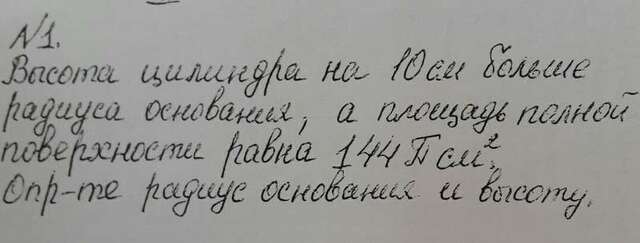 №1.
Высота цилиндра на 10см больше
радиуса основания, а площадь полной
поверхности равна 144П см².
Опр-те радиус основания и высоту.